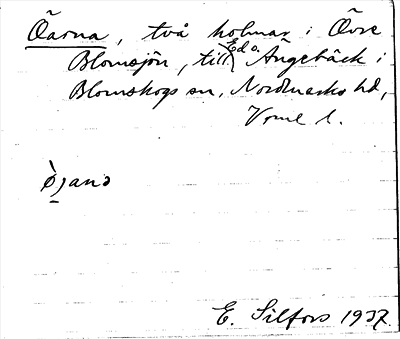 Öarna, två holmar i Övre
Blomsjön, till Ed o. Ängebäck i
Blomskogs sn, Nordmarks hd,
Vrml l.
òjanɔ
E. Silfors 1937